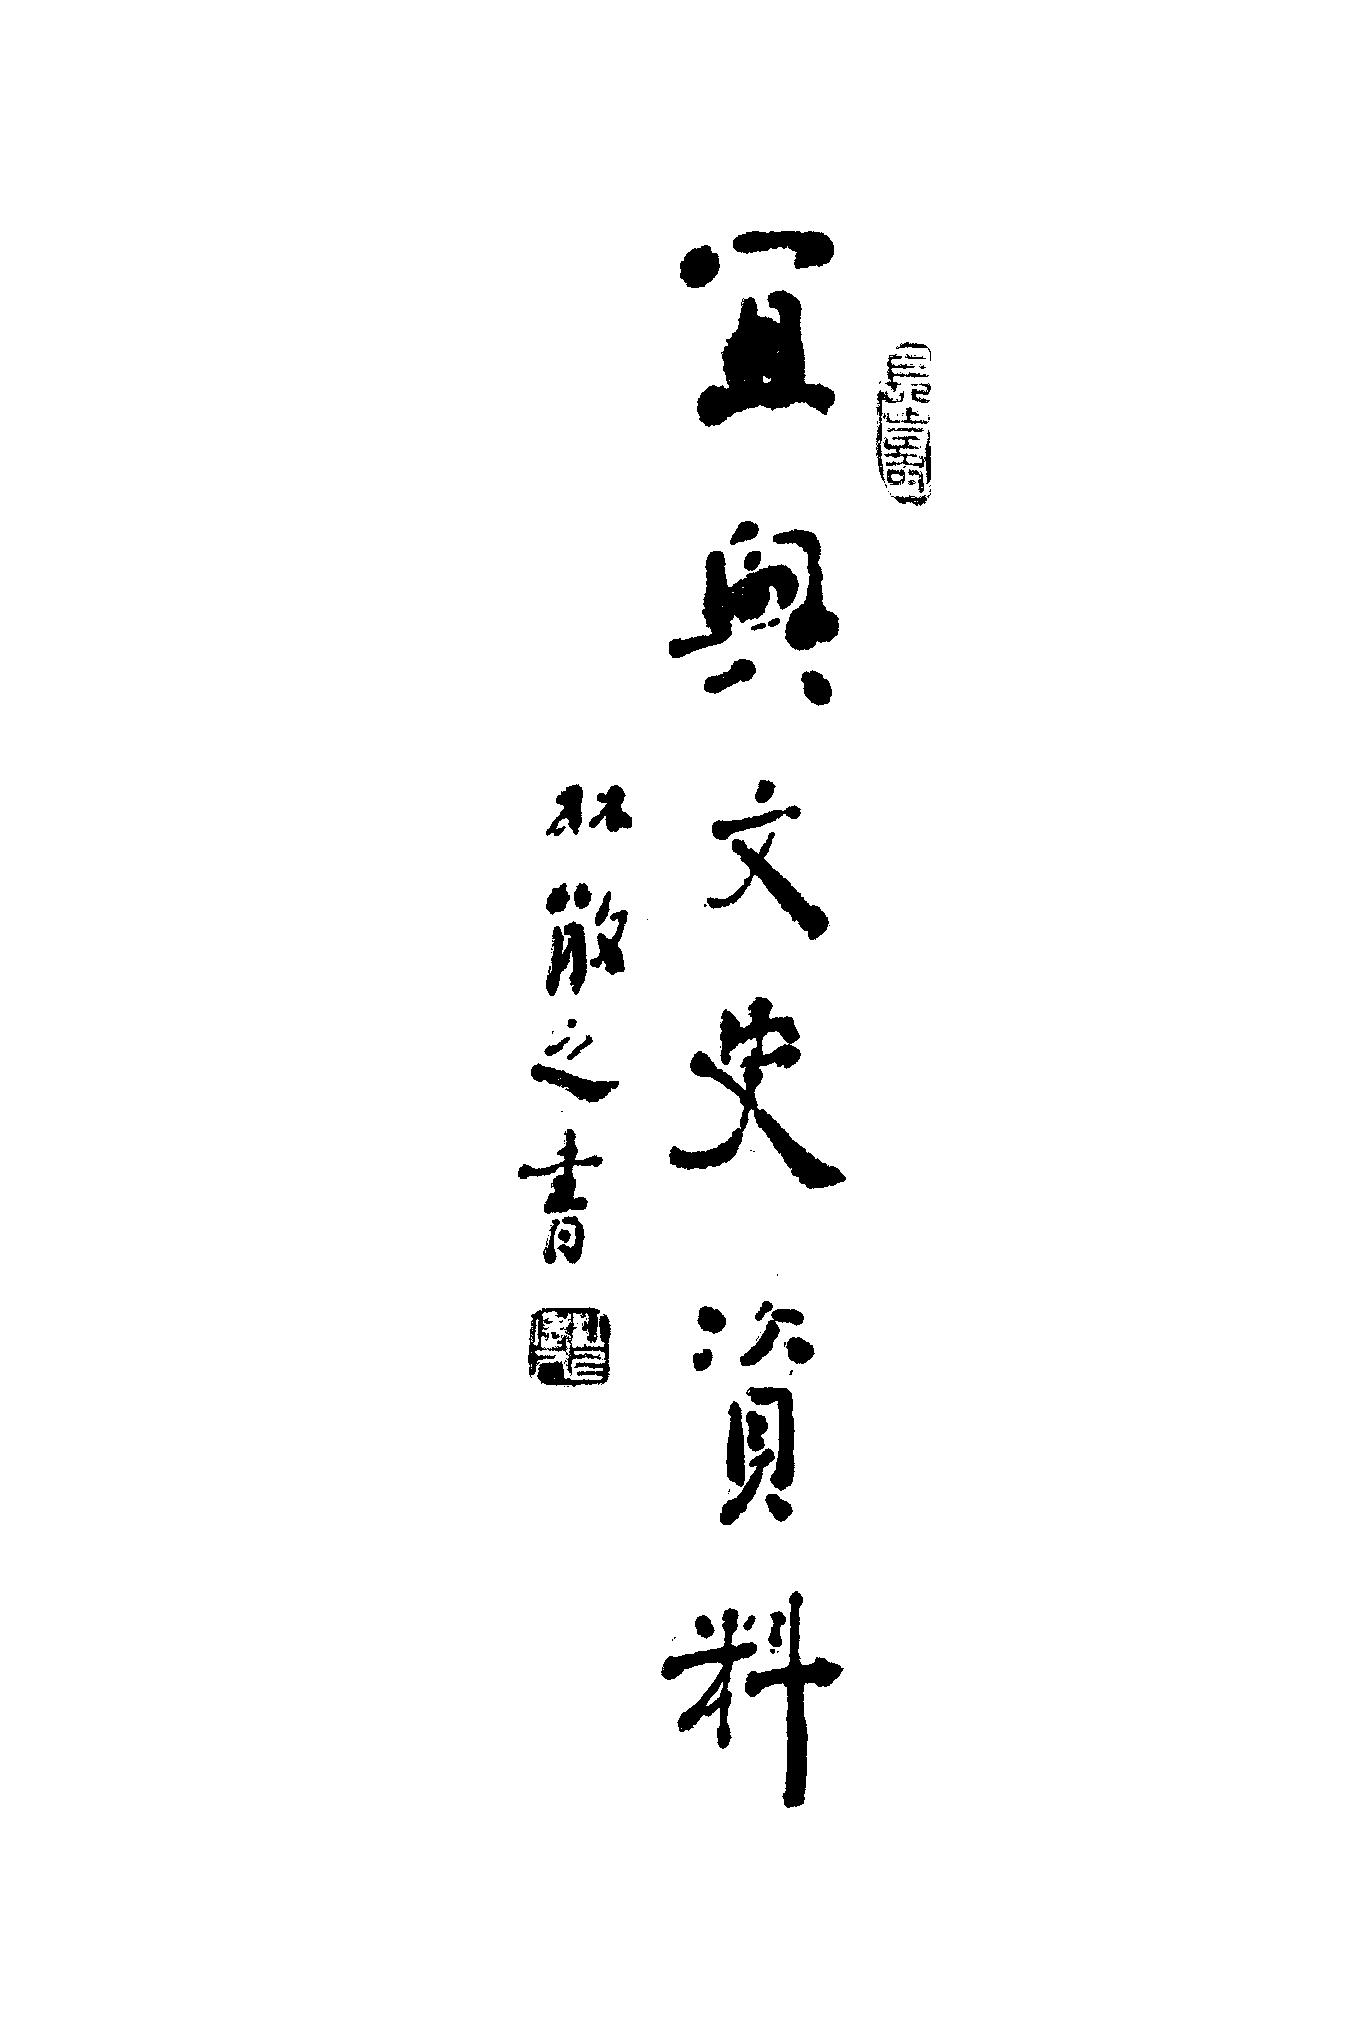 宜興文史資料
林散之書